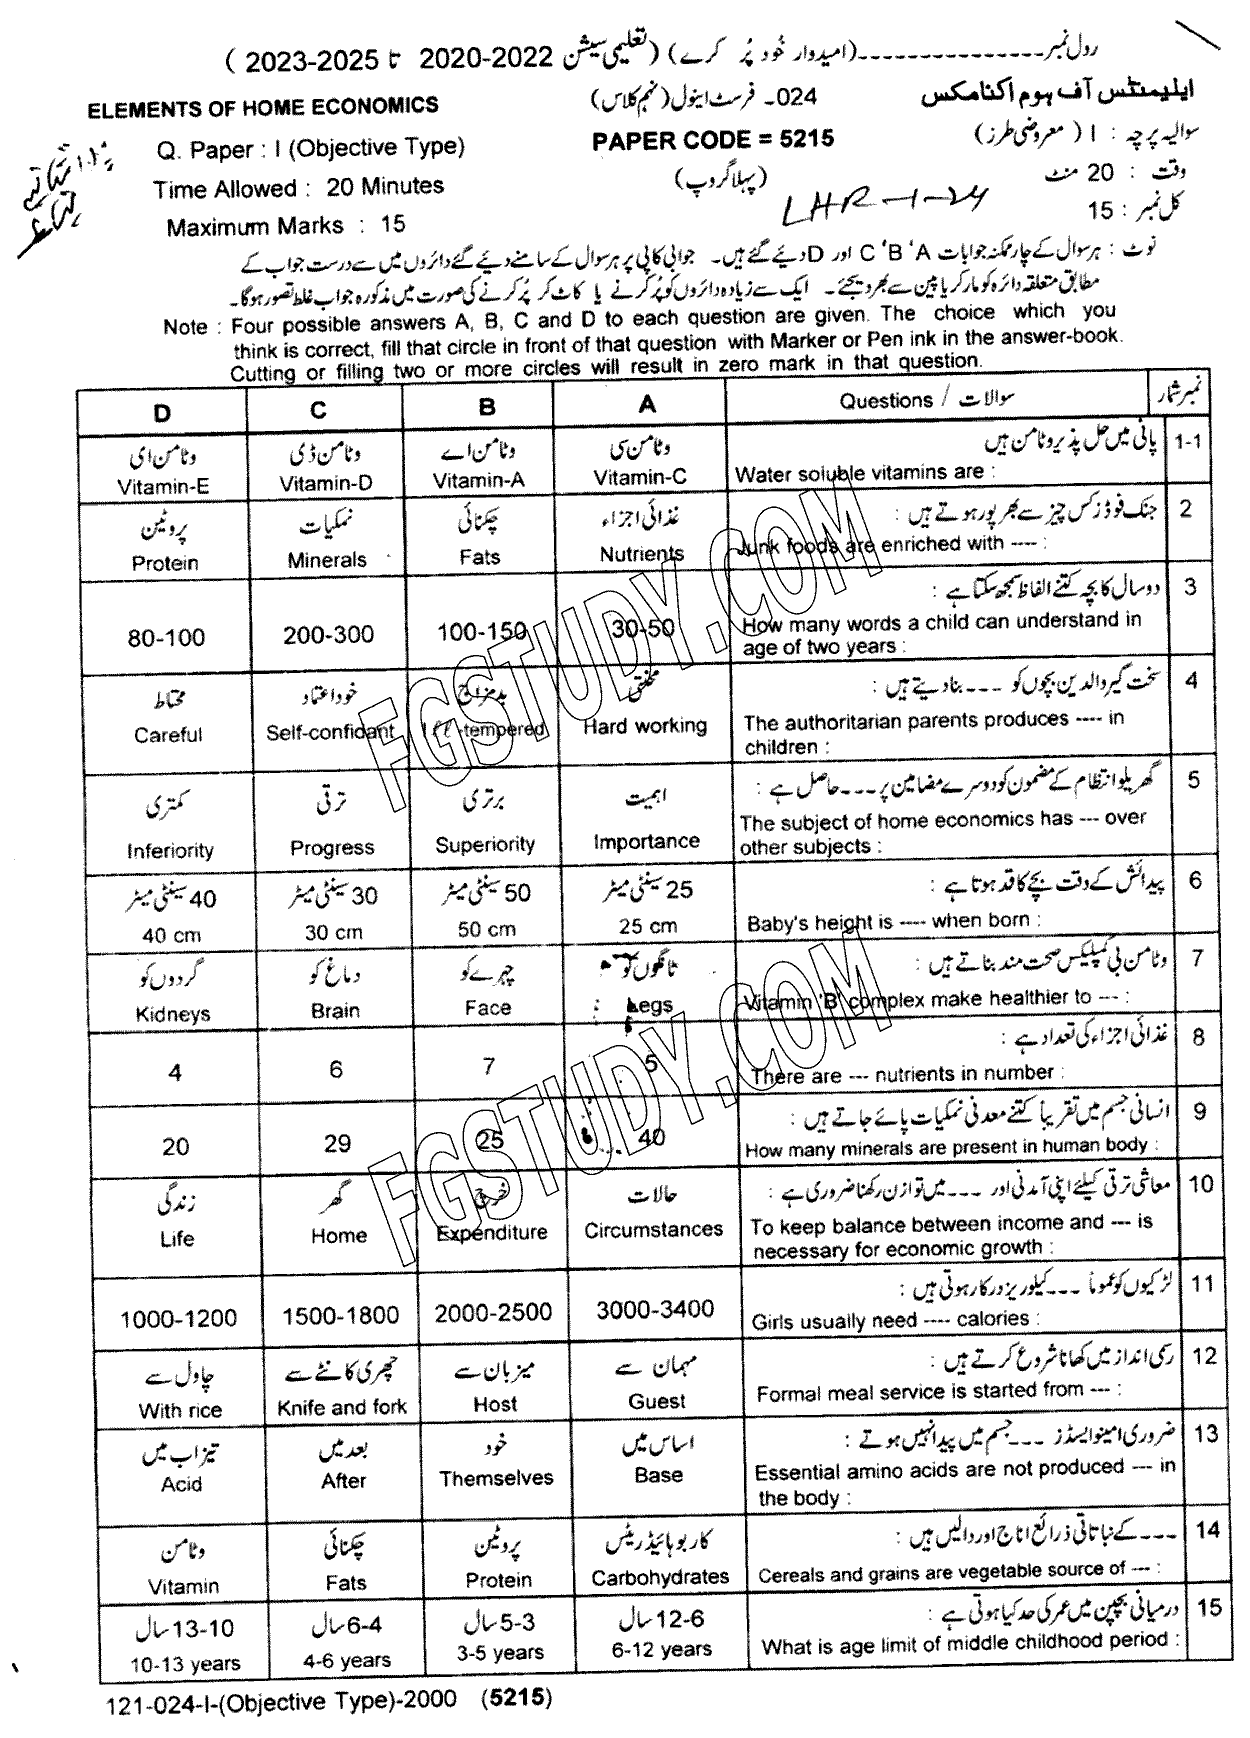 رول نمبر---------------(امیدوار خُود پُر کرے) (تعلیمی سیشن 2022-2020 تا 2025-2023 )
ایلیمنٹس آف ہوم اکنامکس 024- فرسٹ اینول (نہم کلاس) ELEMENTS OF HOME ECONOMICS
سوالیہ پرچہ : I (معروضی طرز) PAPER CODE = 5215 Q. Paper : I (Objective Type)
وقت : 20 منٹ (پہلا گروپ) Time Allowed : 20 Minutes
کل نمبر : 15 LHR-1-24 Maximum Marks : 15
نوٹ : ہر سوال کے چار ممکنہ جوابات A ‘B ‘C اور D دیئے گئے ہیں۔ جوابی کاپی پر ہر سوال کے سامنے دیئے گئے دائروں میں سے درست جواب کے
مطابق متعلقہ دائرہ کو مارکر یا پین سے بھر دیجئے۔ ایک سے زیادہ دائروں کو پُر کرنے یا کاٹ کر پُر کرنے کی صورت میں مذکورہ جواب غلط تصور ہوگا۔
Note : Four possible answers A, B, C and D to each question are given. The choice which you
think is correct, fill that circle in front of that question with Marker or Pen ink in the answer-book.
Cutting or filling two or more circles will result in zero mark in that question.
نمبر شمار سوالات / Questions A B C D
1-1 پانی میں حل پذیر وٹامن ہیں وٹامن سی وٹامن اے وٹامن ڈی وٹامن ای
Water soluble vitamins are : Vitamin-C Vitamin-A Vitamin-D Vitamin-E
2 جنک فوڈز کس چیز سے بھرپور ہوتے ہیں : غذائی اجزاء چکنائی نمکیات پروٹین
Junk foods are enriched with ---- : Nutrients Fats Minerals Protein
3 دو سال کا بچہ کتنے الفاظ سمجھ سکتا ہے :
How many words a child can understand in 30-50 100-150 200-300 80-100
age of two years :
4 سخت گیر والدین بچوں کو ---- بنا دیتے ہیں : محنتی بدمزاج خود اعتماد محتاط
The authoritarian parents produces ---- in Hard working Ill-tempered Self-confidant Careful
children :
5 گھریلو انتظام کے مضمون کو دوسرے مضامین پر ---- حاصل ہے : اہمیت برتری ترقی کمتری
The subject of home economics has --- over Importance Superiority Progress Inferiority
other subjects :
6 پیدائش کے وقت بچے کا قد ہوتا ہے : 25 سینٹی میٹر 50 سینٹی میٹر 30 سینٹی میٹر 40 سینٹی میٹر
Baby's height is ---- when born : 25 cm 50 cm 30 cm 40 cm
7 وٹامن بی کمپلیکس صحت مند بناتے ہیں : ٹانگوں کو چہرے کو دماغ کو گردوں کو
Vitamin 'B' complex make healthier to --- : Legs Face Brain Kidneys
8 غذائی اجزاء کی تعداد ہے :
There are --- nutrients in number : 5 7 6 4
9 انسانی جسم میں تقریباً کتنے معدنی نمکیات پائے جاتے ہیں :
How many minerals are present in human body : 40 25 29 20
10 معاشی ترقی کیلئے اپنی آمدنی اور ---- میں توازن رکھنا ضروری ہے : حالات خرچ گھر زندگی
To keep balance between income and --- is Circumstances Expenditure Home Life
necessary for economic growth :
11 لڑکیوں کو عموماً ---- کیلوریز درکار ہوتی ہیں :
Girls usually need ---- calories : 3000-3400 2000-2500 1500-1800 1000-1200
12 رسمی انداز میں کھانا شروع کرتے ہیں : مہمان سے میزبان سے چھری کانٹے سے چاول سے
Formal meal service is started from --- : Guest Host Knife and fork With rice
13 ضروری امینو ایسڈز ---- جسم میں پیدا نہیں ہوتے : اساس میں خود بعد میں تیزاب میں
Essential amino acids are not produced --- in Base Themselves After Acid
the body :
14 ---- کے نباتاتی ذرائع اناج اور دالیں ہیں : کاربوہائیڈریٹس پروٹین چکنائی وٹامن
Cereals and grains are vegetable source of --- : Carbohydrates Protein Fats Vitamin
15 درمیانی بچپن میں عمر کی حد کیا ہوتی ہے : 6-12 سال 3-5 سال 4-6 سال 10-13 سال
What is age limit of middle childhood period : 6-12 years 3-5 years 4-6 years 10-13 years
121-024-I-(Objective Type)-2000 (5215)
FGSTUDY.COM
FGSTUDY.COM